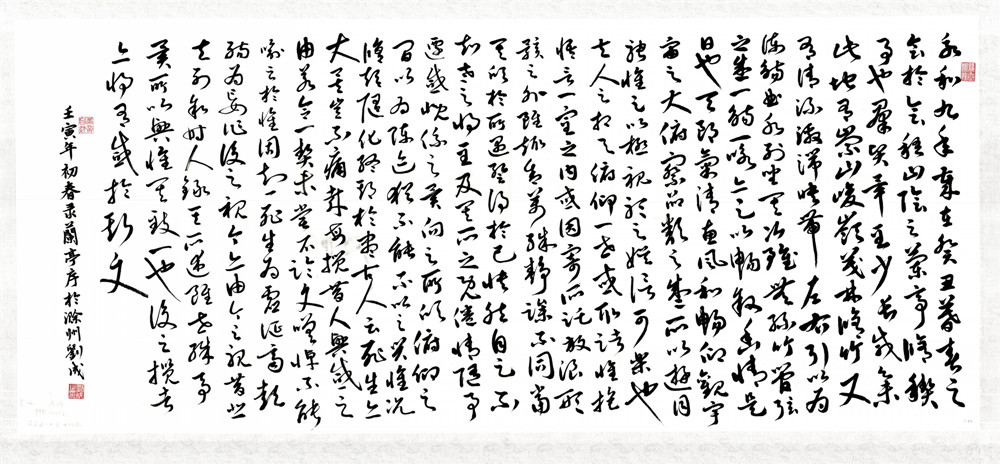 永和九年歲在癸丑暮春之
初會於會稽山陰之蘭亭脩稧
事也羣賢畢至少長咸集
此地有崇山峻嶺茂林脩竹又
有清流激湍暎帶左右引以為
流觴曲水列坐其次雖無絲竹管弦
之盛一觴一詠亦足以暢敘幽情是
日也天朗氣清惠風和暢仰觀宇
宙之大俯察品類之盛所以遊目
騁懷足以極視聽之娛信可樂也
夫人之相與俯仰一世或取諸懷抱
悟言一室之內或因寄所託放浪形
骸之外雖趣舍萬殊靜躁不同當
其欣於所遇暫得於己快然自足不
知老之將至及其所之既惓情隨事
遷感慨係之矣向之所欣俯仰之
間以為陳迹猶不能不以之興懷況
脩短隨化終期於盡古人云死生亦
大矣豈不痛哉每攬昔人興感之
由若合一契未嘗不臨文嗟悼不能
喻之於懷固知一死生為虛誕齊彭
殤為妄作後之視今亦由今之視昔悲
夫列敘時人錄其所述雖世殊事
異所以興懷其致一也後之攬者
亦將有感於斯文
壬寅年初春录蘭亭序於滁州劉成